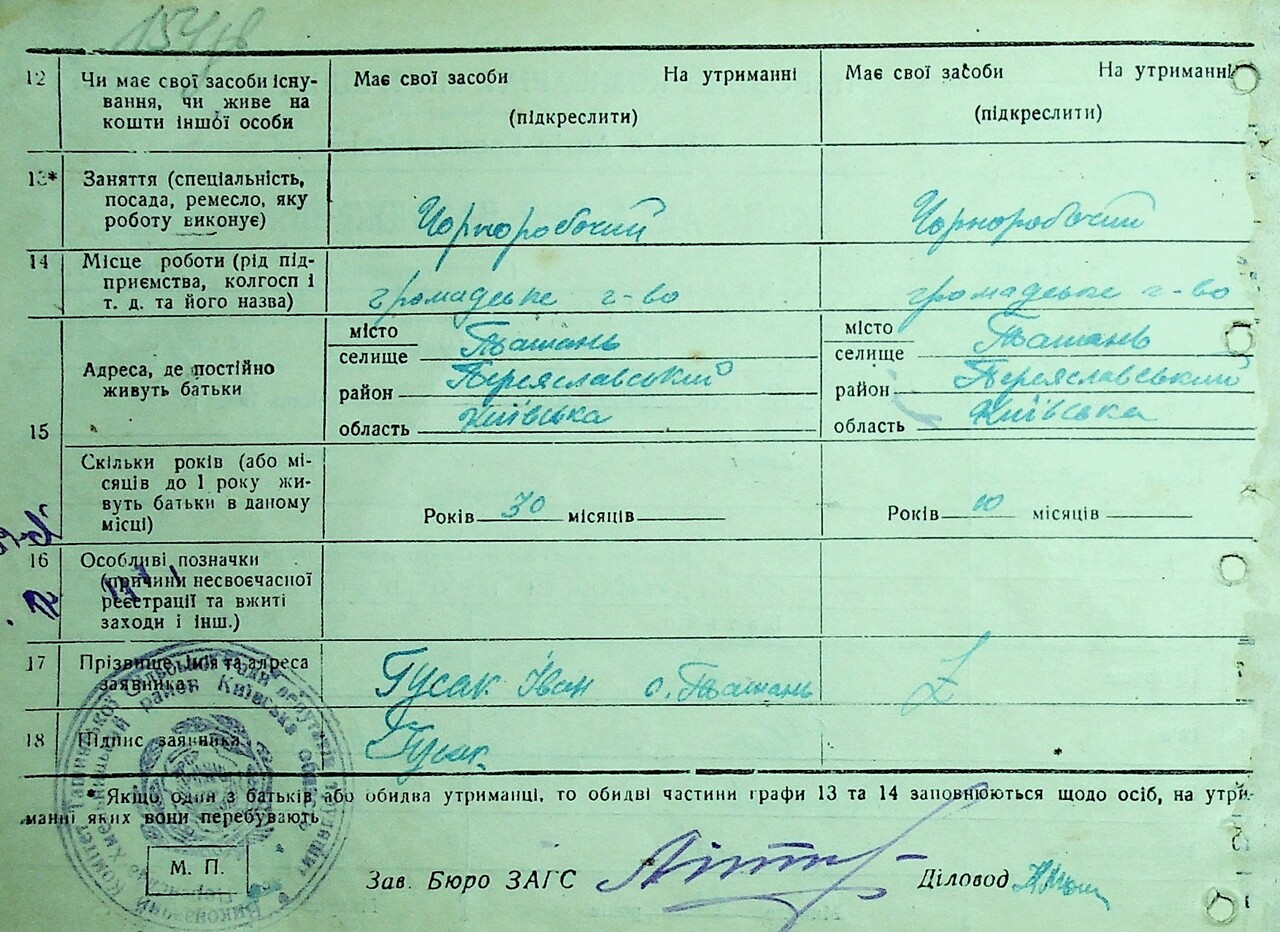 12 Чи має свої засоби існу-
вання, чи живе на
кошти іншої особи
Має свої засоби На утриманні
(підкреслити)
Має свої засоби На утриманні
(підкреслити)
13* Заняття (спеціальність,
посада, ремесло, яку
роботу виконує)
Чорноробочий
Чорноробочий
14 Місце роботи (рід під-
приємства, колгосп і
т. д. та його назва)
громадське г-во
громадське г-во
15 Адреса, де постійно
живуть батьки
місто
селище Ташань
район Переяславський
область Київська
місто
селище Ташань
район Переяславський
область Київська
Скільки років (або мі-
сяців до 1 року жи-
вуть батьки в даному
місці)
Років 30 місяців
Років 10 місяців
16 Особливі позначки
(причини несвоєчасної
реєстрації та вжиті
заходи і інш.)
17 Прізвище, імія та адреса
заявника
Гусак Іван с. Ташань
18 Підпис заявника
Гусак
* Якщо один з батьків або обидва утриманці, то обидві частини графи 13 та 14 заповнюються щодо осіб, на утри-
манні яких вони перебувають
М. П.
Зав. Бюро ЗАГС
Діловод